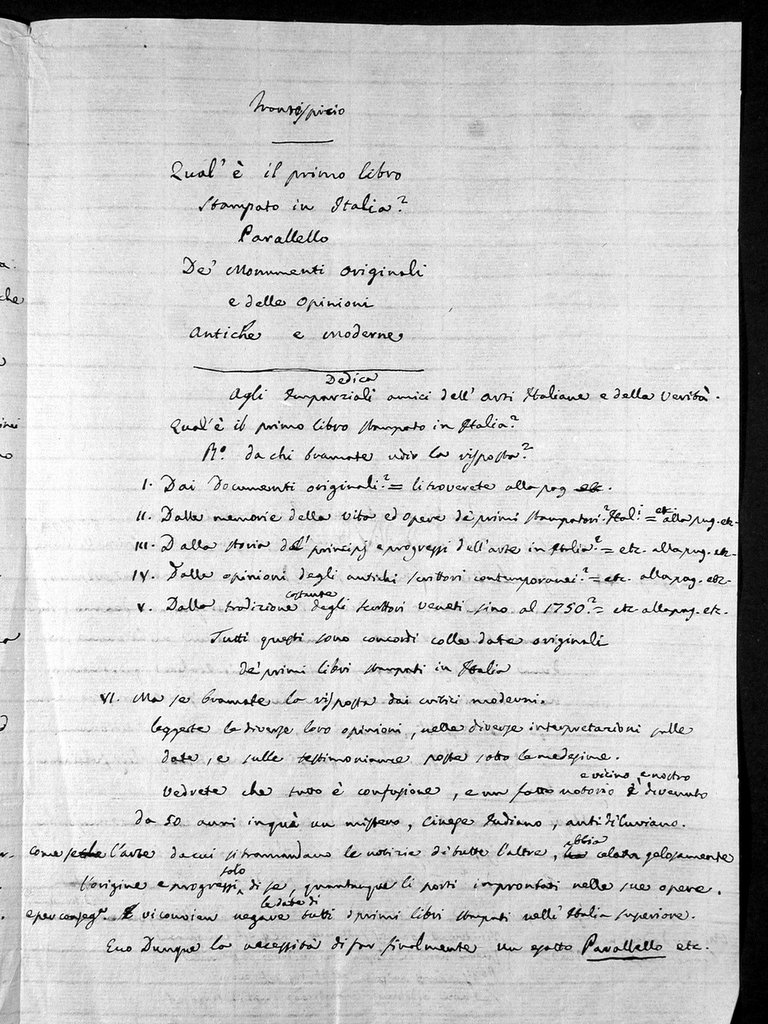 Frontispicio
Qual' è il primo libro
Stampato in Italia?
Parallello
De' Monumenti originali
e delle opinioni
Antiche e moderne
Dedica
Agli Imparziali amici dell' arti Italiane e della verità.
Qual' è il primo libro stampato in Italia?
Rº. da chi bramate udir la risposta?
I. Dai Documenti originali? = li troverete alla pag etc.
II. Dalle memorie della vita ed opere de' primi stampatori? Ital.i = etc alla pag. etc.
III. Dalla storia de' principj e progressi dell' arte in Italia? = etc. alla pag. etc.
IV. Dalle opinioni degli antichi scrittori contemporanei? = etc. alla pag. etc.
costante
V. Dalla tradizione degli scrittori veneti sino al 1750? = etc alla pag. etc.
Tutti questi sono concordi colle date originali
de' primi libri stampati in Italia
VI. Ma se bramate la risposta dai critici moderni.
leggete le diverse loro opinioni, nelle diverse interpretazioni sulle
date, e sulle testimonianze poste sotto le medesime.
e vicino e nostro
Vedrete che tutto è confusione, e un fatto notorio è divenuto
da 50 anni in quà un mistero, Cinese Indiano, antidiluviano.
abbia
come se che l'arte da cui si tramandano le notizie di tutte l'altre, celata gelosamente
solo
l'origine e progressi di se, quantunque li porti improntati nelle sue opere.
le date di
e per conseg.ª vi convien negare tutti i primi libri stampati nell' Italia superiore.
Ecco Dunque la necessità di far finalmente un esatto Parallello etc.